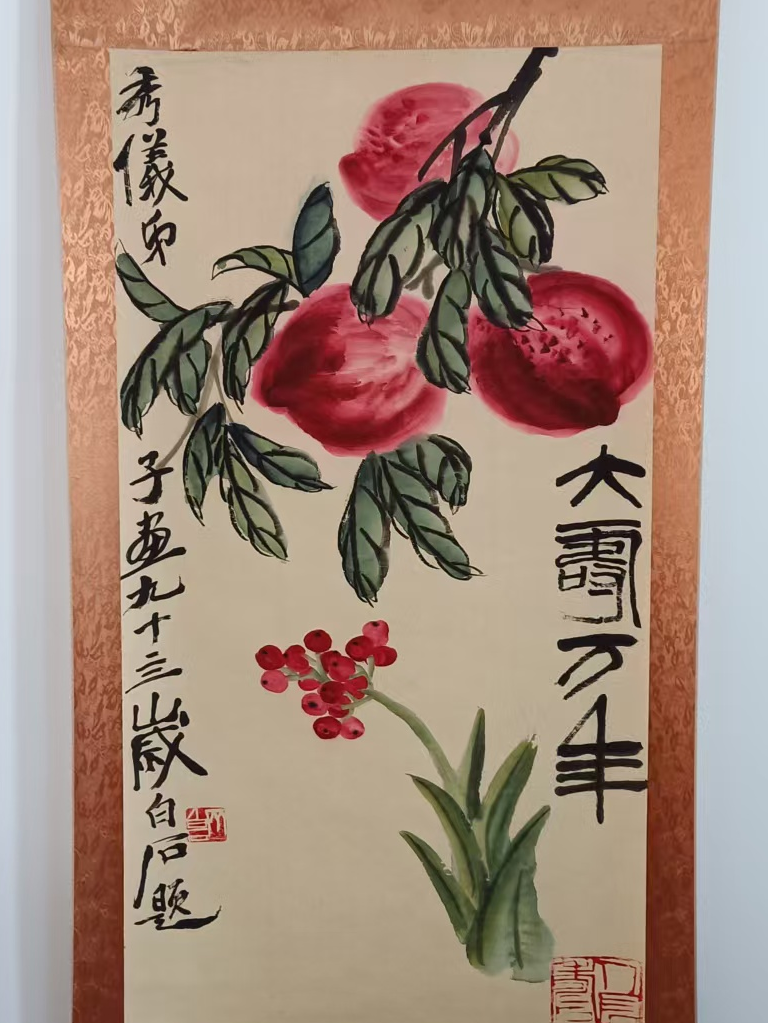 大壽万年
秀儀弟
子画九十三歲白石題